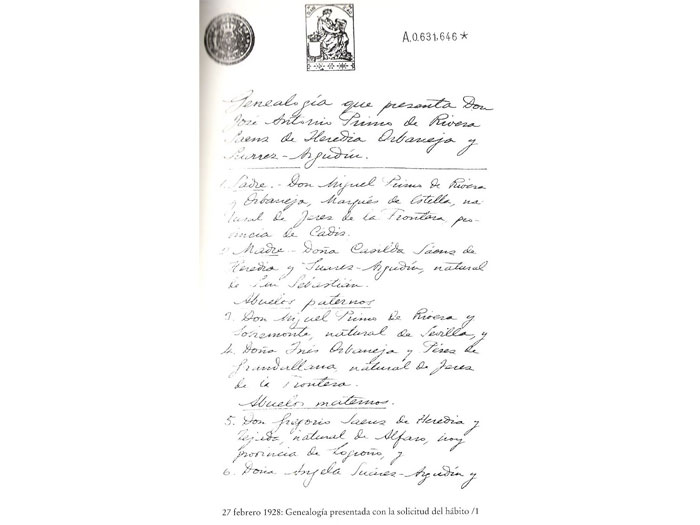 A.0.631.646*
Genealogía que presenta Don
José Antonio Primo de Rivera
Saenz de Heredia Orbaneja y
Suarez-Argudín.
1. Padre.- Don Miguel Primo de Rivera
y Orbaneja, Marqués de Estella, na-
tural de Jerez de la Frontera pro-
vincia de Cádiz.
2. Madre.- Doña Casilda Sáenz de
Heredia y Suarez-Argudín, natural
de San Sebastián.
Abuelos paternos
3. Don Miguel Primo de Rivera y
Sobremonte, natural de Sevilla, y
4. Doña Inés Orbaneja y Pérez de
Grandallana, natural de Jerez
de la Frontera.
Abuelos maternos.
5. Don Gregorio Saenz de Heredia y
Tejada, natural de Alfaro, hoy
provincia de Logroño, y
6. Doña Angela Suárez-Argudín y
27 febrero 1928: Genealogía presentada con la solicitud del hábito /1